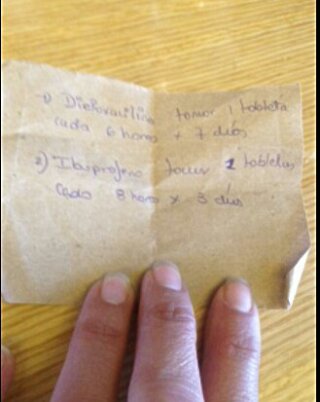 1) Dicloxacilina tomar 1 tableta
cada 6 horas x 7 días
2) Ibuprofeno tomar 1 tabletas
cada 8 horas x 3 días